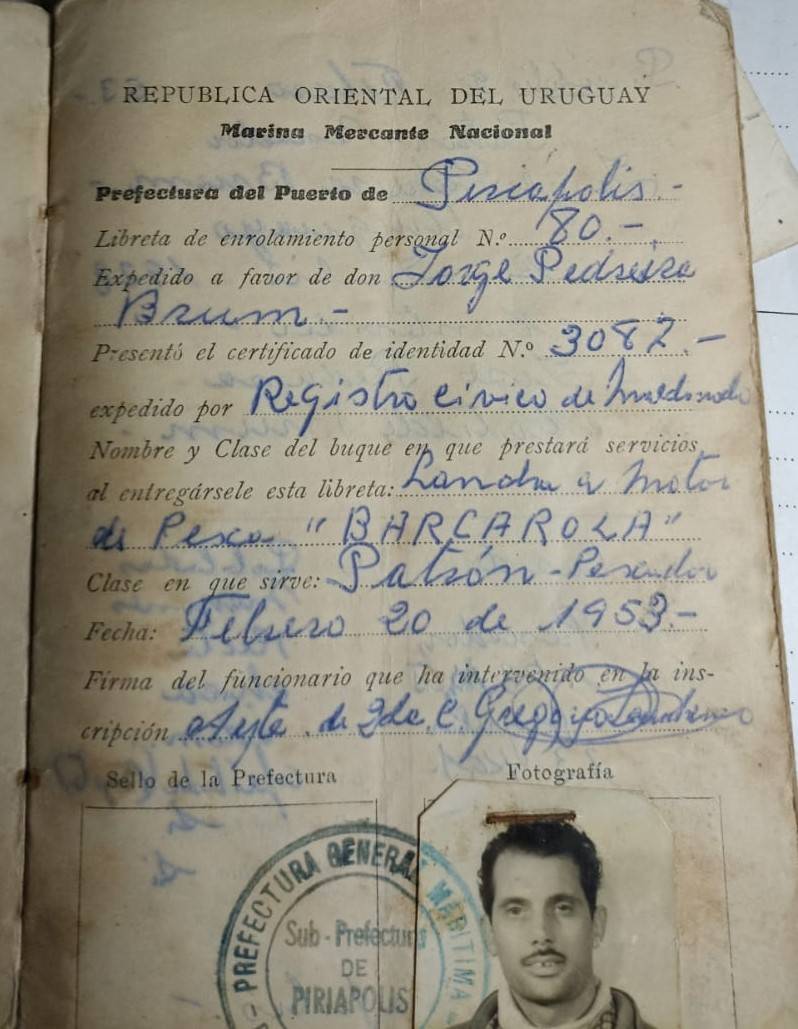 REPUBLICA ORIENTAL DEL URUGUAY
Marina Mercante Nacional
Prefectura del Puerto de Piriapolis.-
Libreta de enrolamiento personal N.º 80.-
Expedido a favor de don Jorge Pedreira
Brum.-
Presentó el certificado de identidad N.º 3087.-
expedido por Registro civico de Maldonado
Nombre y Clase del buque en que prestará servicios
al entregársele esta libreta: Lancha a motor
de Pesca "BARCAROLA"
Clase en que sirve: Patrón-Pescador
Fecha: Febrero 20 de 1953.-
Firma del funcionario que ha intervenido en la ins-
cripción Ayte. de 2da. C. Gregorio
Sello de la Prefectura
Fotografía
PREFECTURA GENERAL MARITIMA
Sub-Prefectura
DE
PIRIAPOLIS